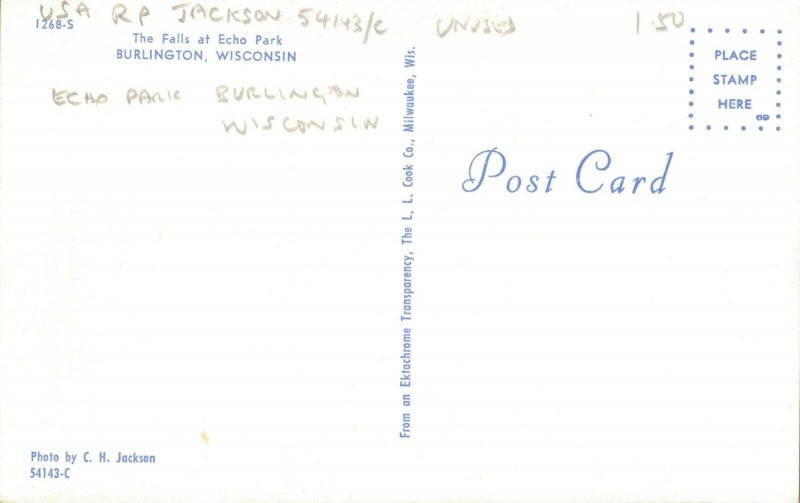 USA RP JACKSON 54143/C UNUSED 1.50
1268-S
The Falls at Echo Park
BURLINGTON, WISCONSIN
ECHO PARK BURLINGTON
WISCONSIN
From an Ektachrome Transparency, The L. L. Cook Co., Milwaukee, Wis.
PLACE
STAMP
HERE
69
Post Card
Photo by C. H. Jackson
54143-C